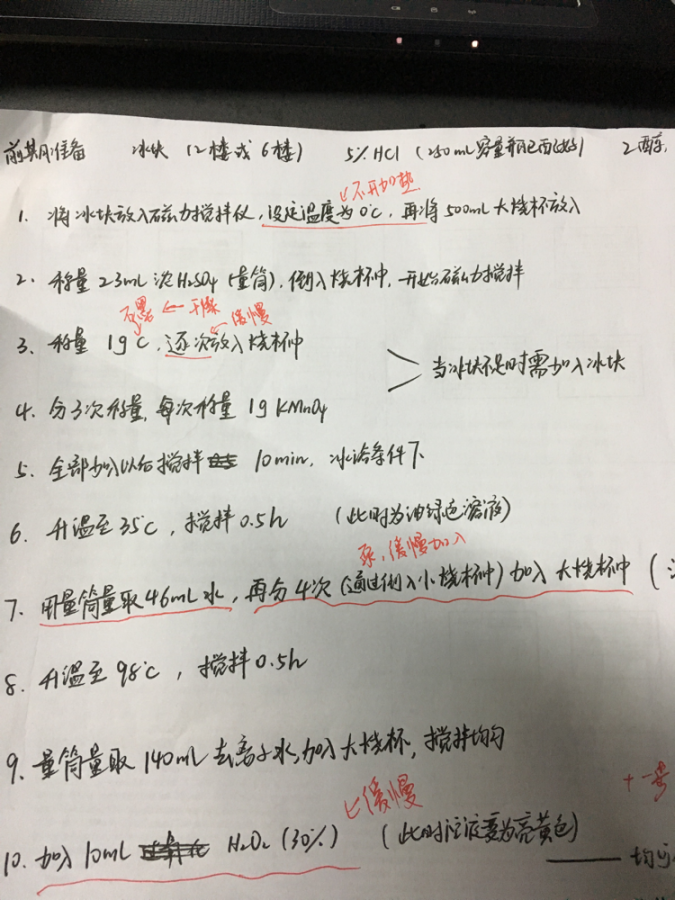 前期准备 冰块 (2楼或6楼) 5% HCl (250mL容量瓶已配好) 乙醇
↙不再加垫
1. 将冰块放入磁力搅拌仪,设定温度为0℃,再将500mL大烧杯放入
2. 称量23mL浓H₂SO₄(量筒),倒入烧杯中,开始磁力搅拌
石墨 ← 干燥 缓慢
3. 称量 1g C,逐次放入烧杯中
当冰块不足时需加入冰块
4. 分3次称量,每次称量 1g KMnO₄
5. 全部加入以后搅拌 10min,冰浴条件下
6. 升温至35℃,搅拌0.5h (此时为油绿色溶液)
泵,缓慢加入
7. 用量筒量取46mL水,再分4次(通过倒入小烧杯中)加入大烧杯中 (
8. 升温至98℃,搅拌0.5h
9. 量筒量取140mL去离子水,加入大烧杯,搅拌均匀
缓慢
+一步
10. 加入10mL H₂O₂(30%) (此时溶液变为亮黄色)
均